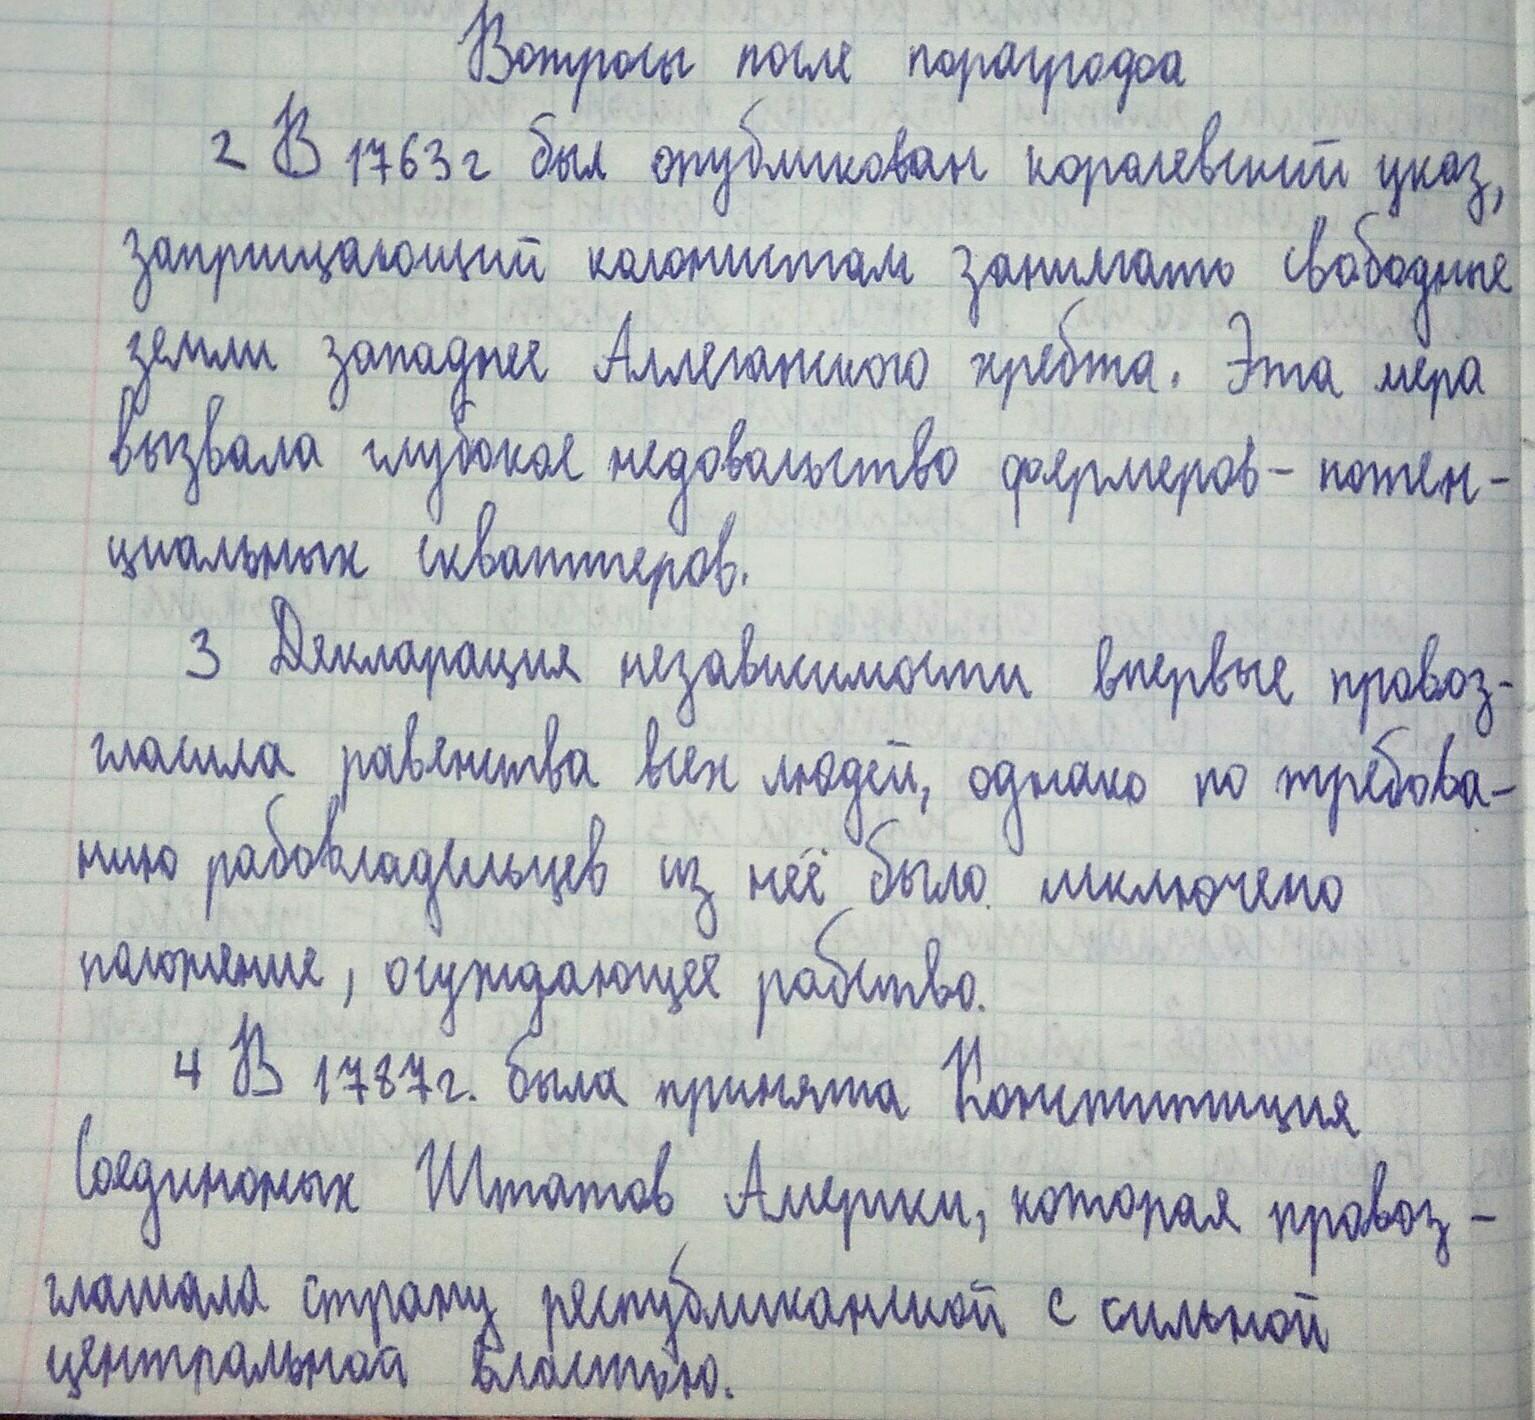 Вопросы после порагродоа
2 В 1763г был опубликован королевский указ,
заприщающий колонистам занимать свободные
земли западнее Аллеганского хребта. Эта мера
вызвала глубокое недовольство фермеров- потен-
циальных скваттеров.
3 Декларация независимости впервые провоз-
гласила равенства всех людей, однако по требова-
нию рабовладельцев из неё было исключено
положение, осуждающее рабство.
4 В 1787г. была принята Конституция
Соединоных Штатов Америки, которая провоз-
глашала страну республиканской с сильной
центральной властью.